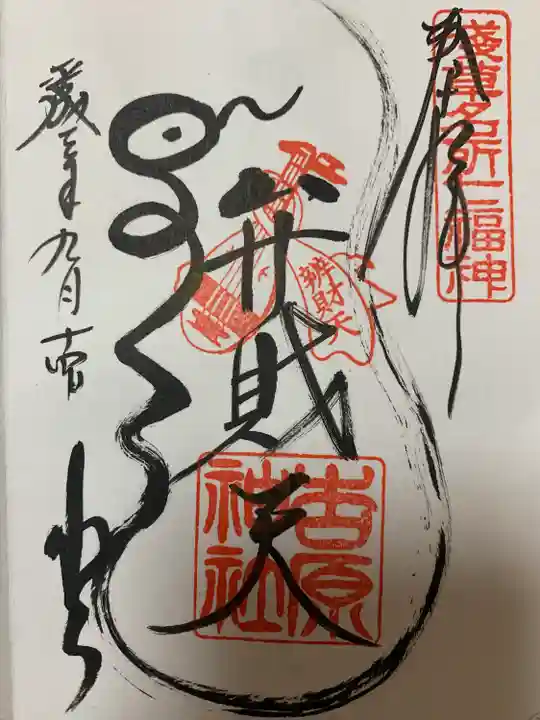 奉拝
浅草名所七福神
弁財天
辨財天
吉原
神社
九月